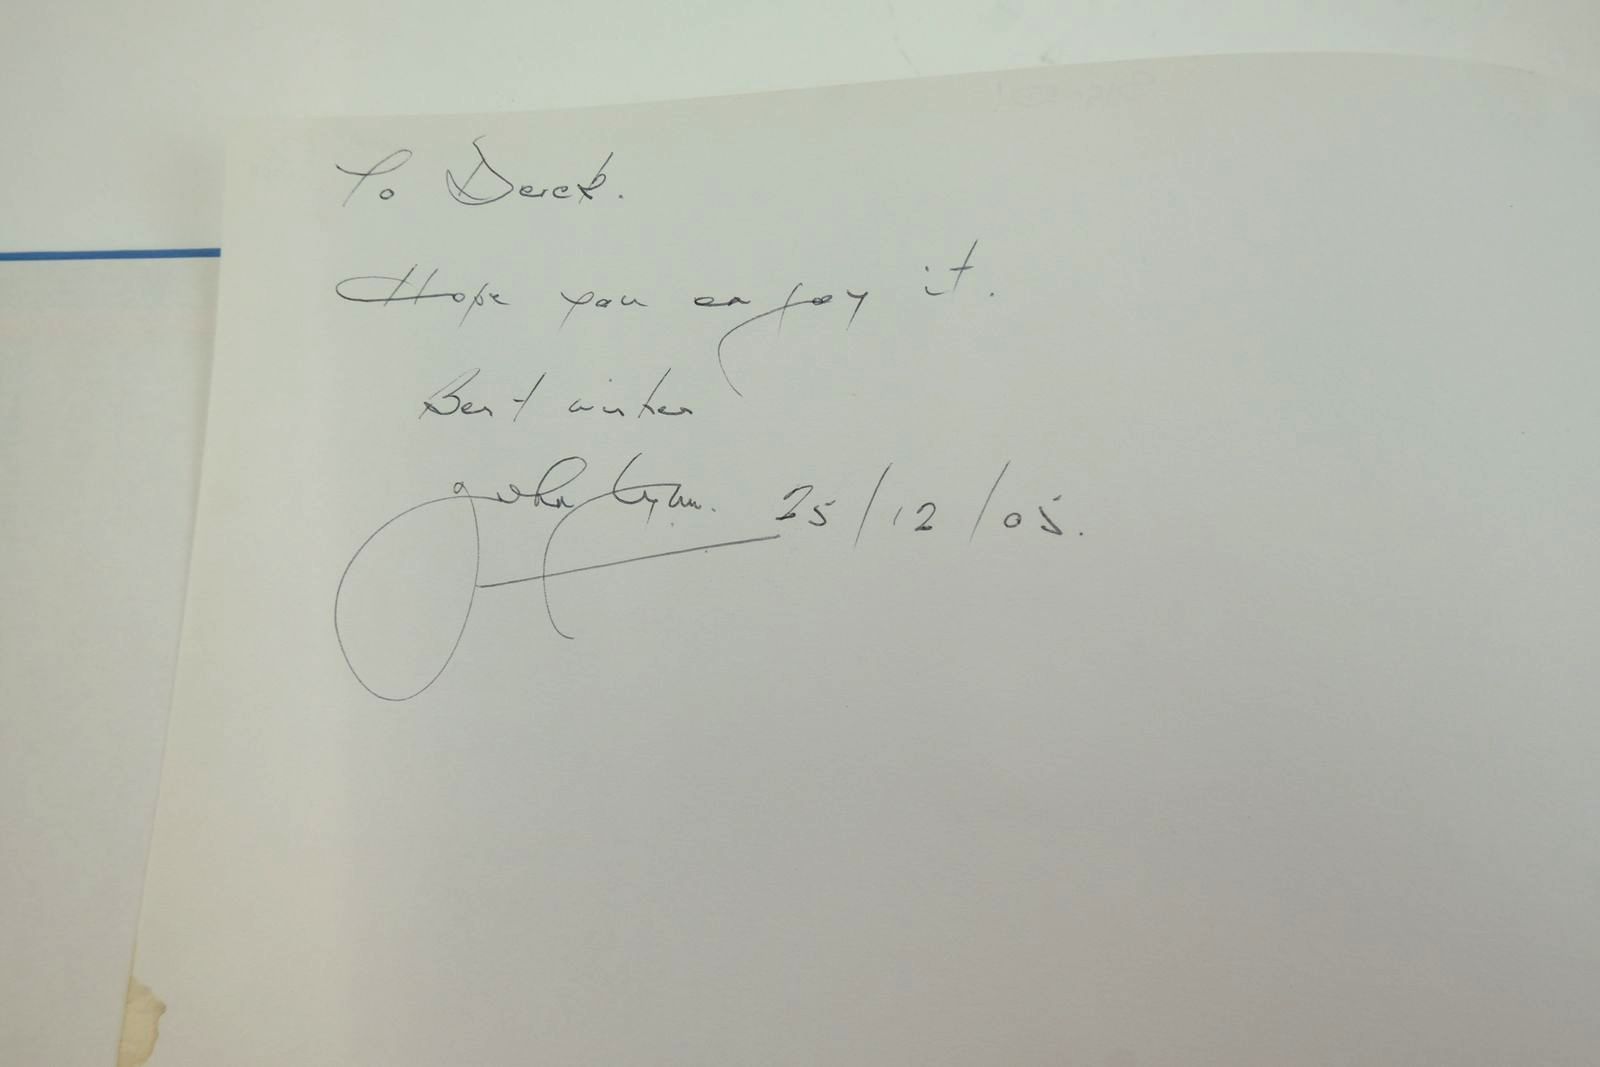 To Derek.
Hope you enjoy it.
Best wishes
John 25/12/05.